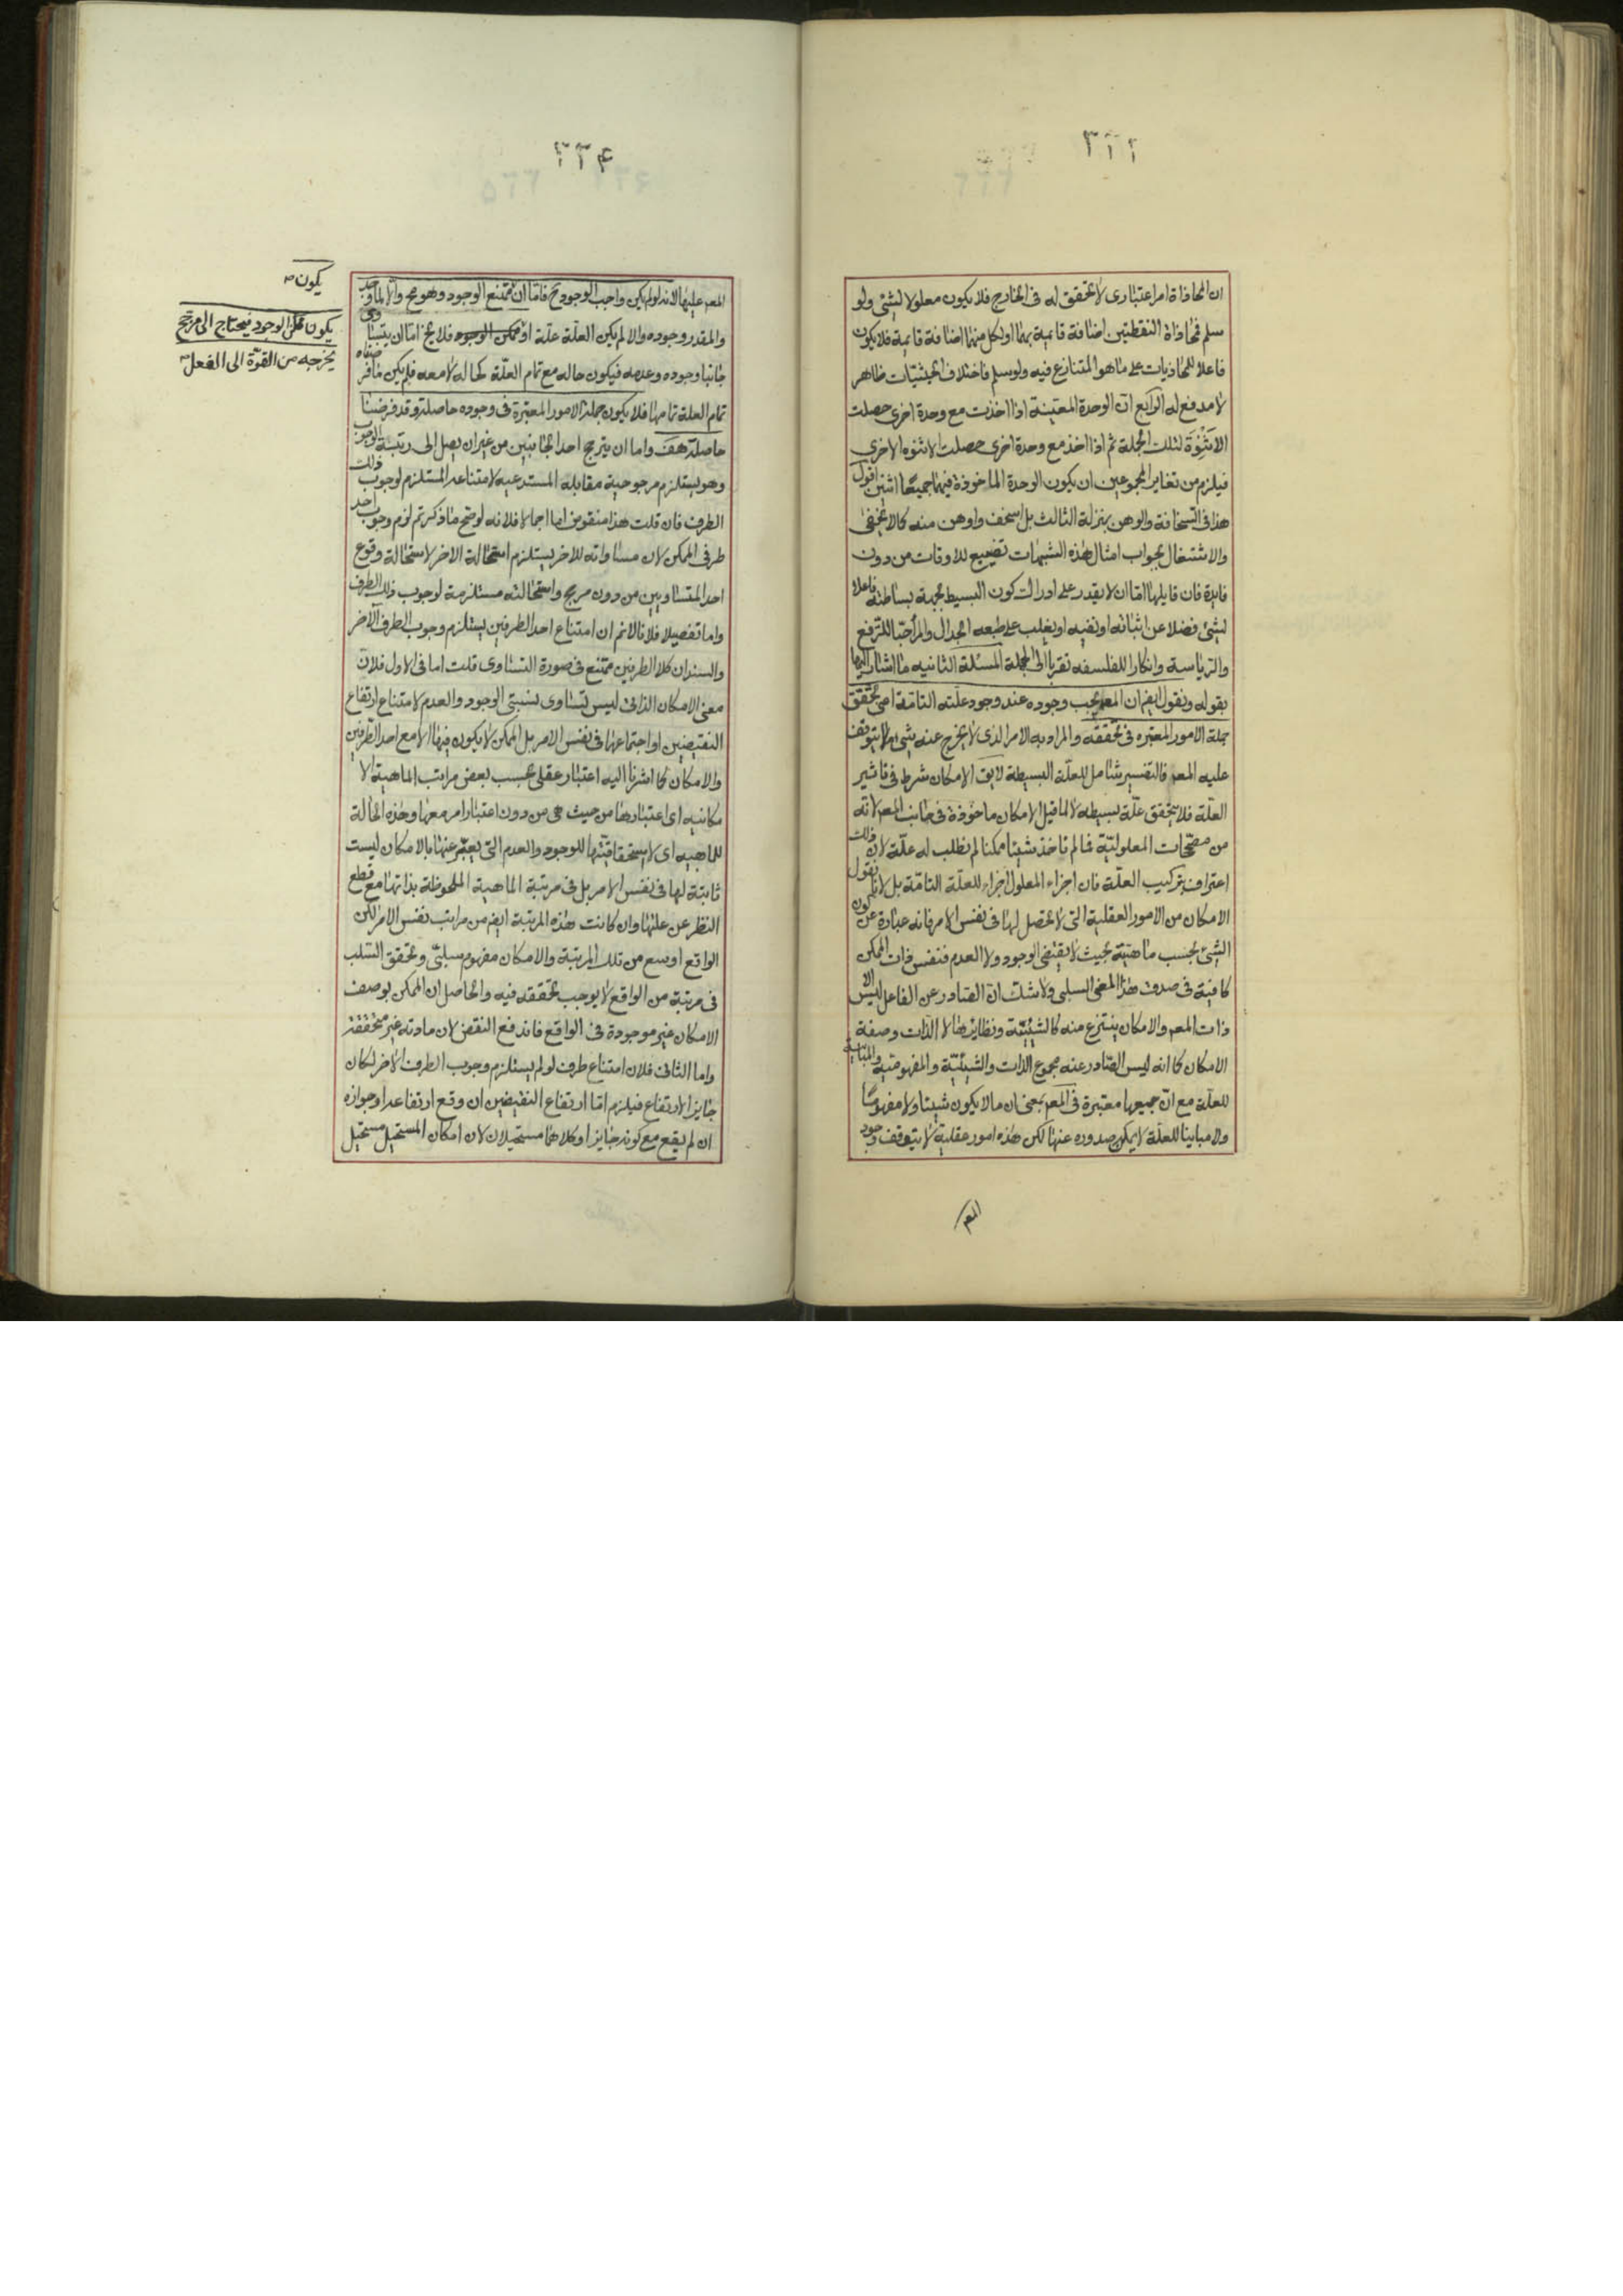 ٣٢٢
ان المحاذاة امر اعتبارى لا تحقق له فى الخارج فلا يكون معلولا لشئ ولو
سلم فمحاذاة النقطتين اضافة قايمة بهما او لكل منهما اضافة قايمة فلا يكون
فاعلا للمحاذيات على ما هو المتنازع فيه ولو سلم فاختلاف الحيثيات ظاهر
لا مدفع له الرابع ان الوحدة المعينة اذا اخذت مع وحدة اخرى حصلت
الاثنوة لتلك الجملة ثم اذا اخذ مع وحدة اخرى حصلت الاثنوه الاخرى
فيلزم من تغاير المجموعين ان يكون الوحدة الماخوذة فيهما جميعا اثنين اقول
هذا فى السخافة والوهن بمنزلة الثالث بل اسخف واوهن منه كما لا يخفى
والاشتغال بجواب امثال هذه الشبهات تضييع للاوقات من دون
فايدة فان قايلها اما ان لا يقدر على ادراك كون البسيط بجهة بساطته فاعلا
لشئ فضلا عن اثباته او نفيه او يغلب على طبعه الجدال والمراء حبا للترفع
والرياسة وانكارا للفلسفه تقربا الى الجهلة المسئلة الثانيه ما اشار اليها
بقوله ونقول ايضا ان المعلول يجب وجوده عند وجود علته التامة اعنى تحقق
جملة الامور المعتبره فى تحققه والمراد به الامر الذى لا يخرج عنه شئ مما يتوقف
عليه المعم فالتفسير شامل للعلة البسيطة لا يق الامكان شرط فى تاثير
العلة فلا يتحقق علة بسيطه لا لما قيل الامكان ماخوذة فى جانب المعم لانه
من مصححات المعلولية فما لم ناخذ شيئا ممكنا لم نطلب له علة لان ذلك
اعتراف بتركيب العلة فان اجزاء المعلول اجزاء للعلة التامة بل لانا نقول
الامكان من الامور العقلية التى لا تحصل لها فى نفس الامر فانه عبارة عن كون
الشئ بحسب ماهيته بحيث لا يقتضى الوجود ولا العدم فنفس ذات الممكن
كافية فى صدق هذا المعنى السلبى ولا شك ان الصادر عن الفاعل ليس الا
ذات المعم والامكان ينتزع منه كالشيئية ونظايرها لا الذات وصفة
الامكان كما انه ليس الصادر عنه مجموع الذات والشيئية والمفهومية والمباينة
للعلة مع ان جميعها معتبرة فى المعم بمعنى ان ما لا يكون شيئا ولا مفهوما
ولا مباينا للعلة لا يمكن صدوره عنها لكن هذه امور عقلية لا يتوقف وجود
المعم
٣٢۴
المعم عليها لانه لو لم يكن واجب الوجود ح فاما ان ممتنع الوجود وهو مح والا لما وجد
والمقدر وجوده والا لم يكن العلة علة او ممكن الوجود فلا يخ اما ان يتساوى
جانبا وجوده وعدمه فيكون حاله مع تمام العلة كحاله لا معه فلم يكن ما فرضناه
تمام العلة تمامها فلا يكون جملة الامور المعتبرة فى وجوده حاصلة وقد فرضنا
حاصلة هف واما ان يترجح احد الجانبين من غير ان يصل الى رتبة الوجوب
وهو يستلزم مرجوحية مقابله المستدعيه لامتناعه المستلزم لوجوب ذلك
الطرف فان قلت هذا منقوض اما اجمالا فلانه لو صح ما ذكرتم لزم وجوب احد
طرفى الممكن لان مساواته للاخر يستلزم استحالة الاخر لاستحالة وقوع
احد المتساويين من دون مرجح واستحالته مستلزمة لوجوب ذلك الطرف
واما تفصيلا فلانا لا نم ان امتناع احد الطرفين يستلزم وجوب الطرف الآخر
والسند ان كلا الطرفين ممتنع فى صورة التساوى قلت اما فى الاول فلان
معنى الامكان الذاتى ليس تساوى نسبتى الوجود والعدم لامتناع ارتفاع
النقيضين او اجتماعهما فى نفس الامر بل الممكن لا يكون فيها الا مع احد الطرفين
والامكان كما اشرنا اليه اعتبار عقلى بحسب بعض مراتب الماهية لا
مكانيه اى اعتبارها من حيث هى من دون اعتبار امر معها وهذه الحالة
للماهيه اى لا يستحقاقيتها للوجود والعدم التى يعبر عنها بالامكان ليست
ثابتة لها فى نفس الامر بل فى مرتبة الماهية الملحوظة بذاتها مع قطع
النظر عن علتها وان كانت هذه المرتبة ايضا من مراتب نفس الامر لكن
الواقع اوسع من تلك المرتبة والامكان مفهوم سلبى وتحقق السلب
فى مرتبة من الواقع لا يوجب تحققه فيه والحاصل ان الممكن بوصف
الامكان غير موجودة فى الواقع فاندفع النقض لان مادته غير متحققة
واما الثانى فلان امتناع طرف لو لم يستلزم وجوب الطرف الاخر لكان
جايز الارتفاع فيلزم اما ارتفاع النقيضين ان وقع ارتفاعه او جوازه
ان لم يقع مع كونه جايزا وكلاهما مستحيلان لان امكان المستحيل مستحيل
يكون
يكون ممكن الوجود فيحتاج الى مرجح
يخرجه من القوة الى الفعل